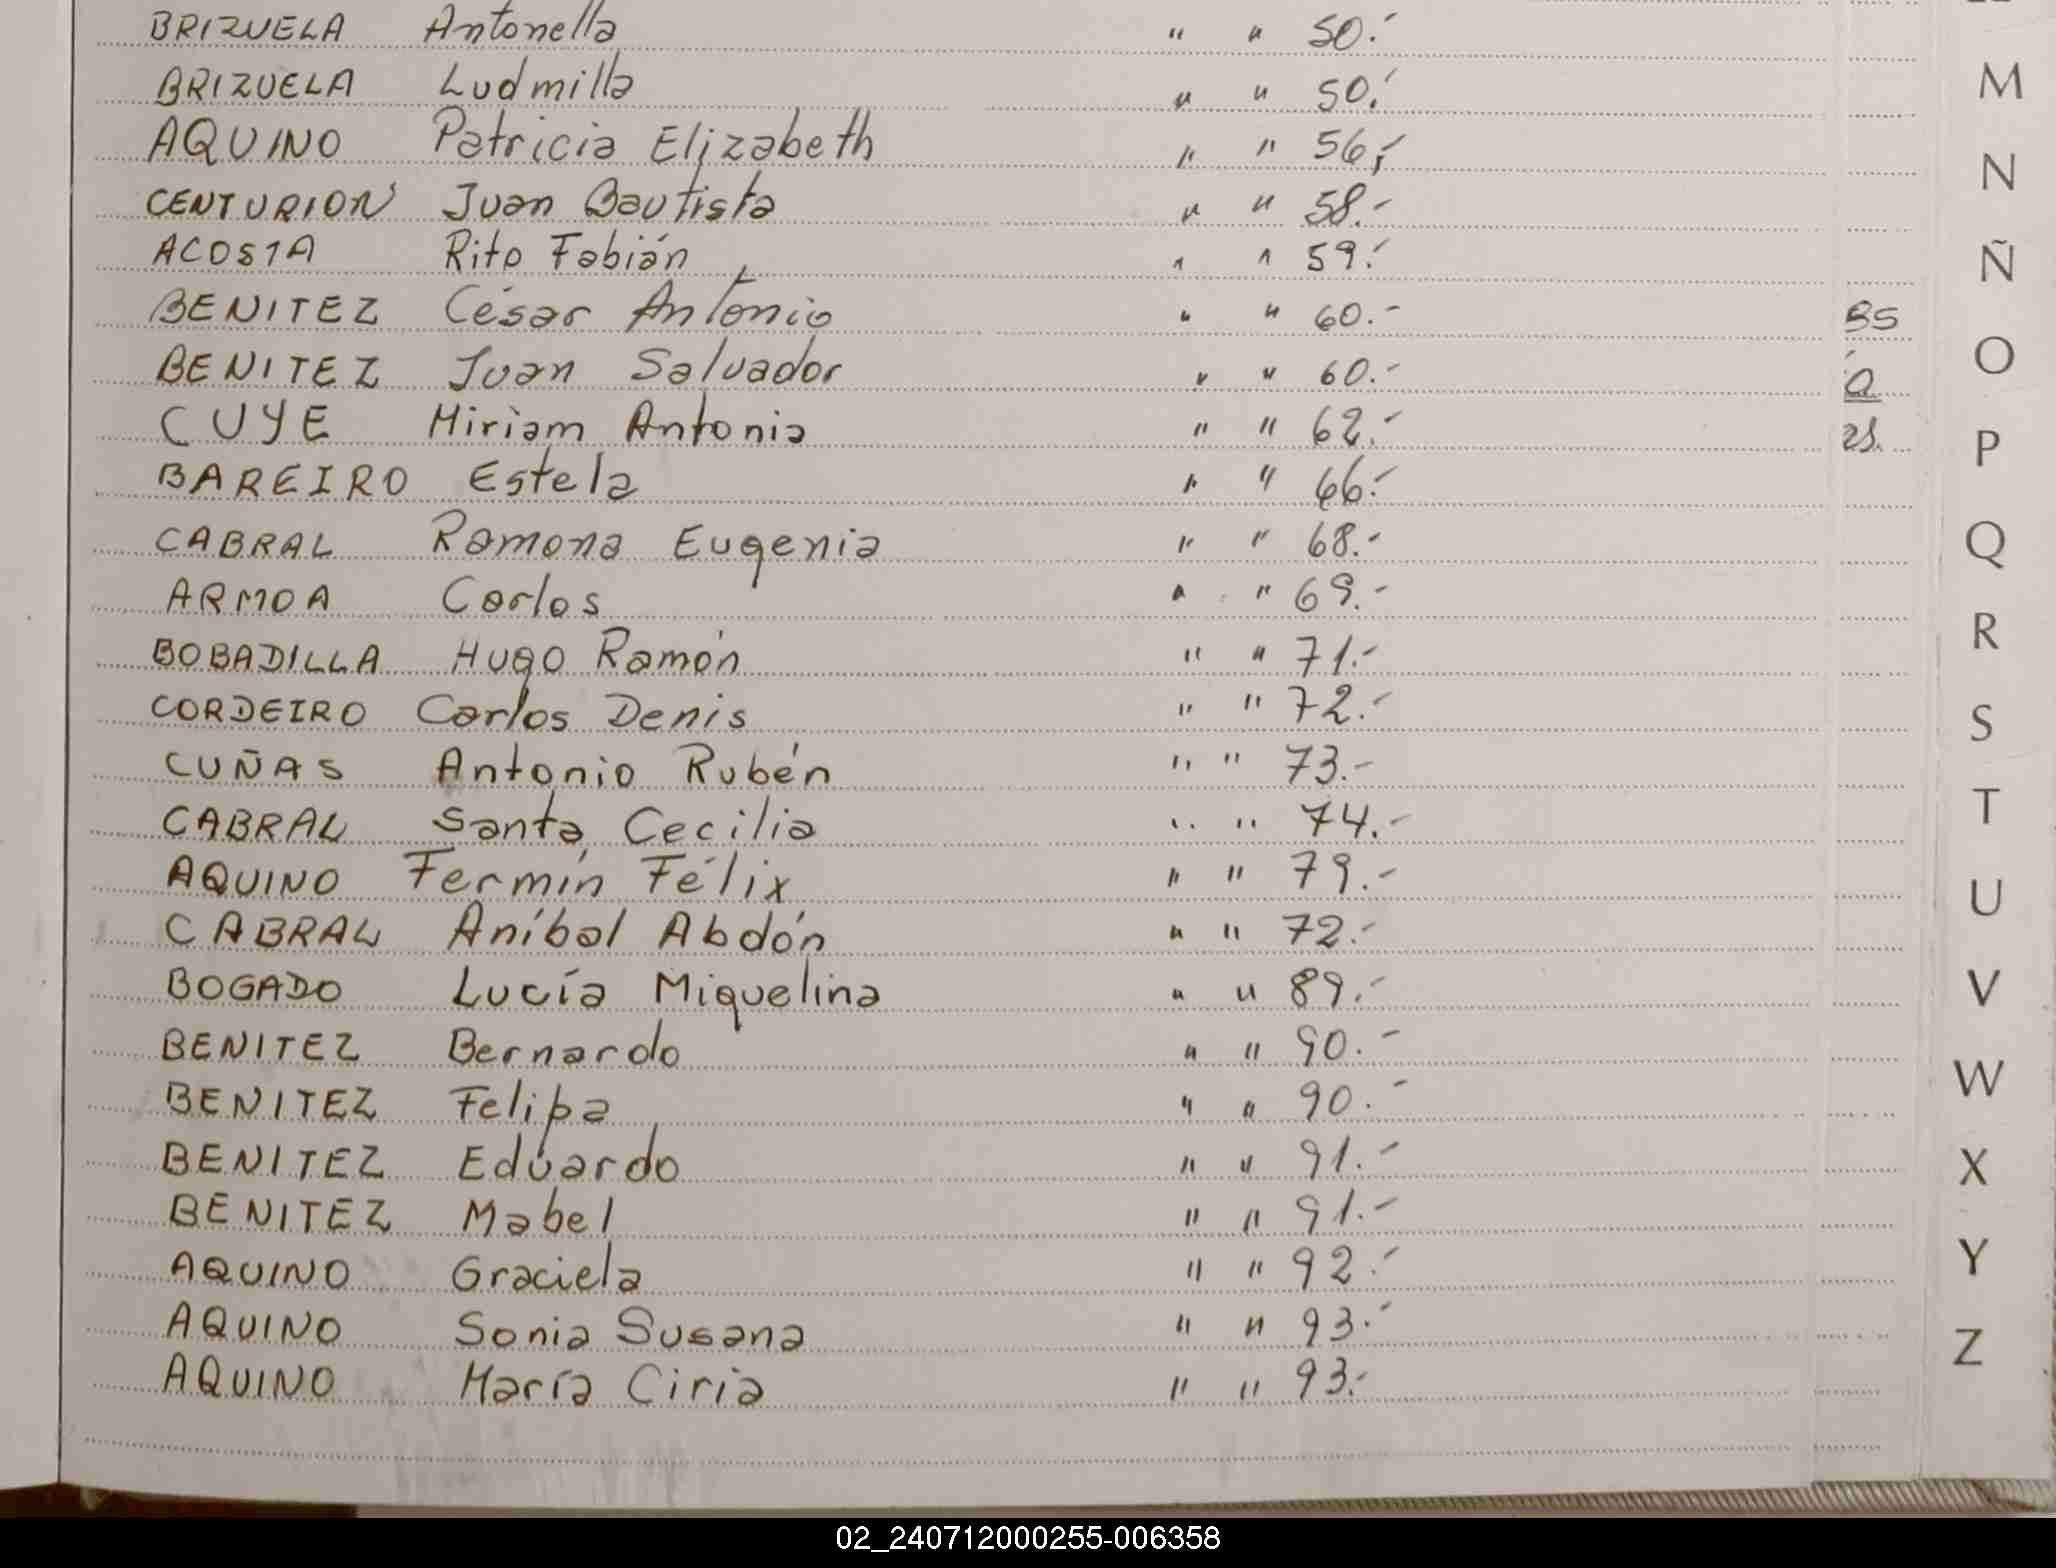 BRIZUELA Antonella " " 50.-
BRIZUELA Ludmilla " " 50.-
M
AQUINO Patricia Elizabeth " " 56.-
N
CENTURION Juan Bautista " " 58.-
ACOSTA Rito Fabián " " 59.-
Ñ
BENITEZ César Antonio " " 60.-
BENITEZ Juan Salvador " " 60.-
O
CUYE Miriam Antonia " " 62.-
P
BAREIRO Estela " " 66.-
CABRAL Ramona Eugenia " " 68.-
Q
ARMOA Carlos " " 69.-
R
BOBADILLA Hugo Ramón " " 71.-
CORDEIRO Carlos Denis " " 72.-
S
CUÑAS Antonio Rubén " " 73.-
T
CABRAL Santa Cecilia " " 74.-
AQUINO Fermín Félix " " 79.-
U
CABRAL Aníbal Abdón " " 72.-
BOGADO Lucía Miquelina " " 89.-
V
BENITEZ Bernardo " " 90.-
W
BENITEZ Felipa " " 90.-
BENITEZ Eduardo " " 91.-
X
BENITEZ Mabel " " 91.-
Y
AQUINO Graciela " " 92.-
AQUINO Sonia Susana " " 93.-
Z
AQUINO María Ciria " " 93.-
02_240712000255-006358